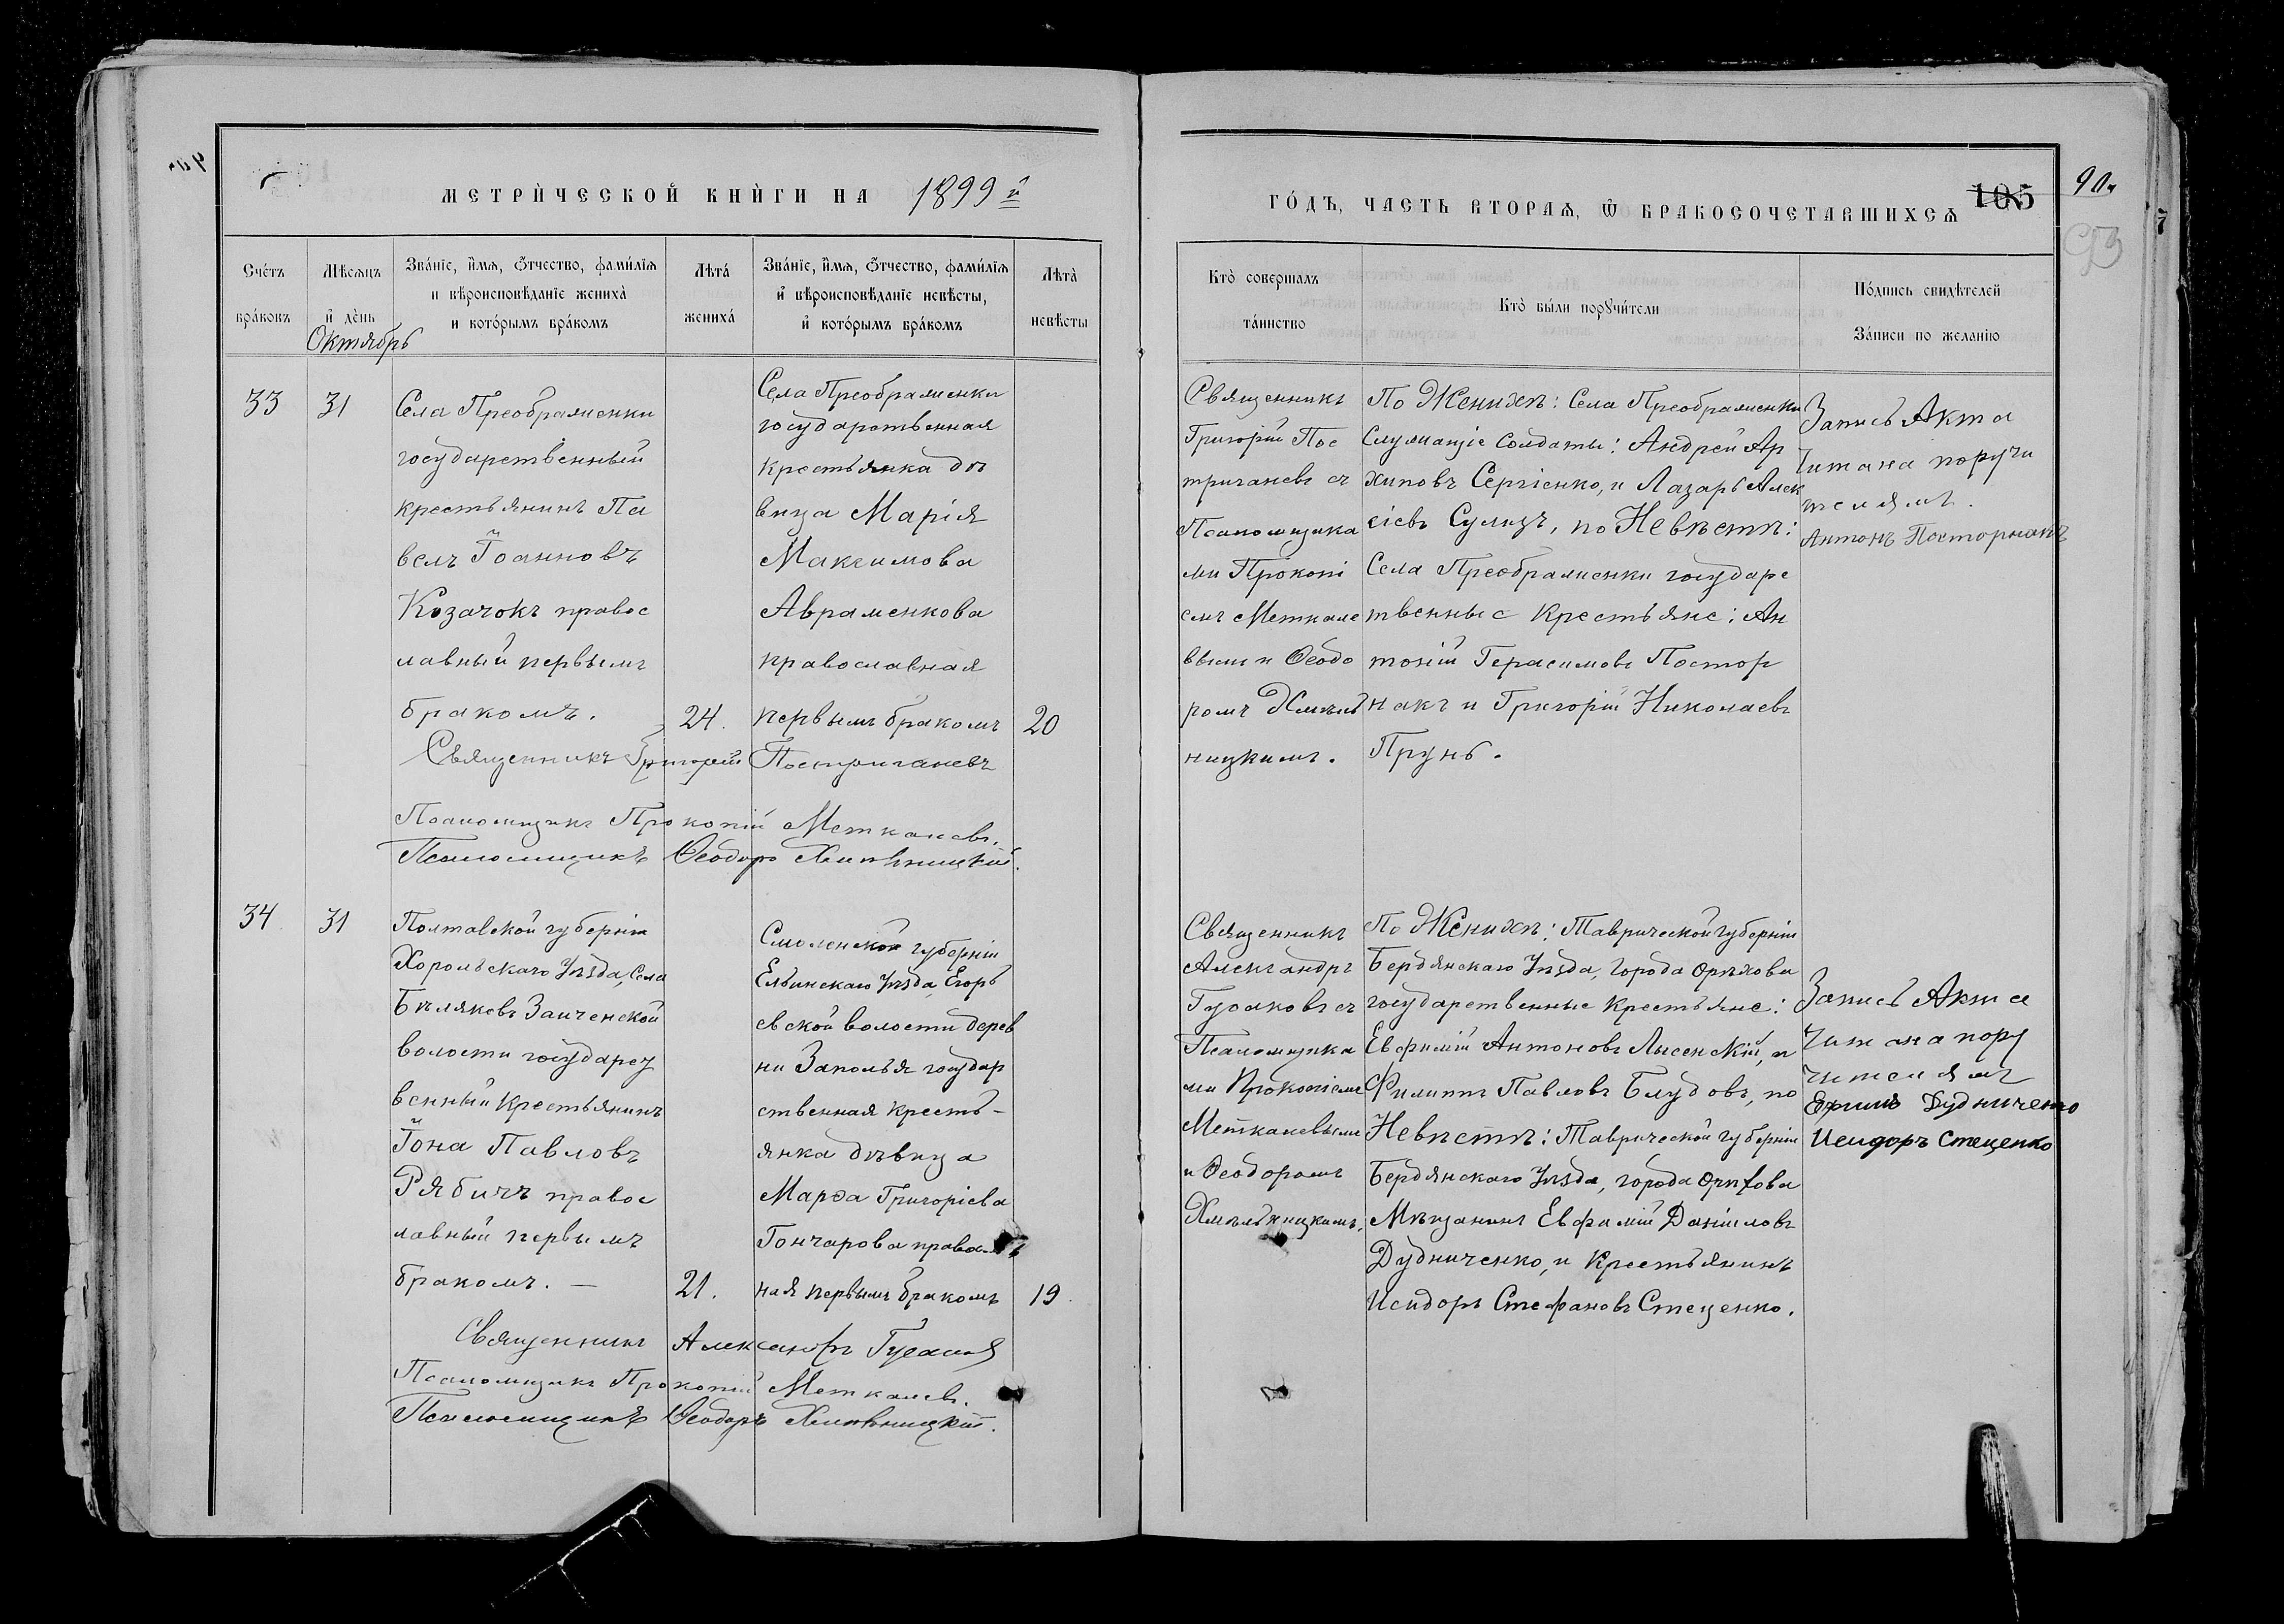 МЕТРИ́ЧЕСКОЙ КНИ́ГИ НА 1899 й
Сче́тъ бра́ковъ
Мѣсяцъ и҆ де́нь
Октябрь
Зва́нїе, и҆́мя, ѻ҆́тчество, фами́лїя
и вѣроисповѣ́данїе жениха̀
и кото́рымъ бра́комъ
Лѣта́ жениха́
Зва́нїе, и҆́мя, ѻ҆́тчество, фами́лїя
и҆ вѣроисповѣ́данїе невѣ́сты,
и҆ кото́рымъ бра́комъ
Лѣта̀ невѣ́сты
33
31
Села Преображенки
государственный
крестьянинъ Па
велъ Іоанновъ
Козачокъ правос
лавный первымъ
бракомъ.
24.
Села Преображенки
государственная
крестьянка дѣ
вица Марія
Максимова
Авраменкова
православная
первымъ бракомъ
20
Священникъ Григорій Постригачевъ
Псаломщикъ Прокопій Меткалевъ.
Псаломщикъ Ѳеодоръ Хмѣльницкій.
34
31
Полтавской губерніи
Хорольскаго Уѣзда, Села
Бѣляковъ Заиченской
волости государст
венный крестьянинъ
Іона Павловъ
Рябичъ правос
лавный первымъ
бракомъ. —
21.
Смоленской губерніи
Ельинскаго Уѣзда, Егорь
евской волости дерев
ни Заполья государ
ственная кресть-
янка дѣвица
Марѳа Григоріева
Гончарова
ная первымъ бракомъ
19.
Священникъ Александръ Гусаковъ
Псаломщикъ Прокопій Меткалевъ.
Псаломщикъ Ѳеодоръ Хмѣльницкій.
ГО́ДЪ, ЧАСТЬ ВТОРАЯ, Ѡ БРАКОСОЧЕТАВШИХСЯ
105
90
93
Кто̀ совершалъ та́инство
Кто̀ бы́ли порꙋчи́тели
По́дпись свидѣ́телей
За́писи по жела́нїю
Священникъ
Григорій Пос
тригачевъ съ
Псаломщика
ми Прокопі
емъ Меткале
вымъ и Ѳеодо
ромъ Хмѣль
ницкимъ.
По Женихѣ: Села Преображенки
Служащіе Солдаты: Андрей Ар
хиповъ Сергіенко, и Лазарь Алек
сіевъ Сулизъ, по Невѣстѣ:
Села Преображенки государс
твенные Крестьяне: Ан
тоній Герасимовъ Постор
накъ и Григорій Николаевъ
Прунь.
Запись Акта
читана поручи
телямъ.
Антонъ Посторнакъ
Священникъ
Александръ
Гусаковъ съ
Псаломщика
ми Прокопіемъ
Меткалевымъ
и Ѳеодоромъ
Хмѣльницкимъ.
По Женихѣ: Таврической губерніи
Бердянскаго Уѣзда, города Орѣхова
государственные Крестьяне:
Евфимій Антоновъ Лысенкій, и
Филиппъ Павловъ Блудовъ, по
Невѣстѣ: Таврической губерніи
Бердянскаго Уѣзда, города Орѣхова
Мѣщанинъ Евфимій Даніиловъ
Дудниченко, и Крестьянинъ
Исидоръ Стефановъ Стеценко.
Запись Акта
читана пору
чителямъ
Ефимъ Дудниченко
Исидоръ Стеценко